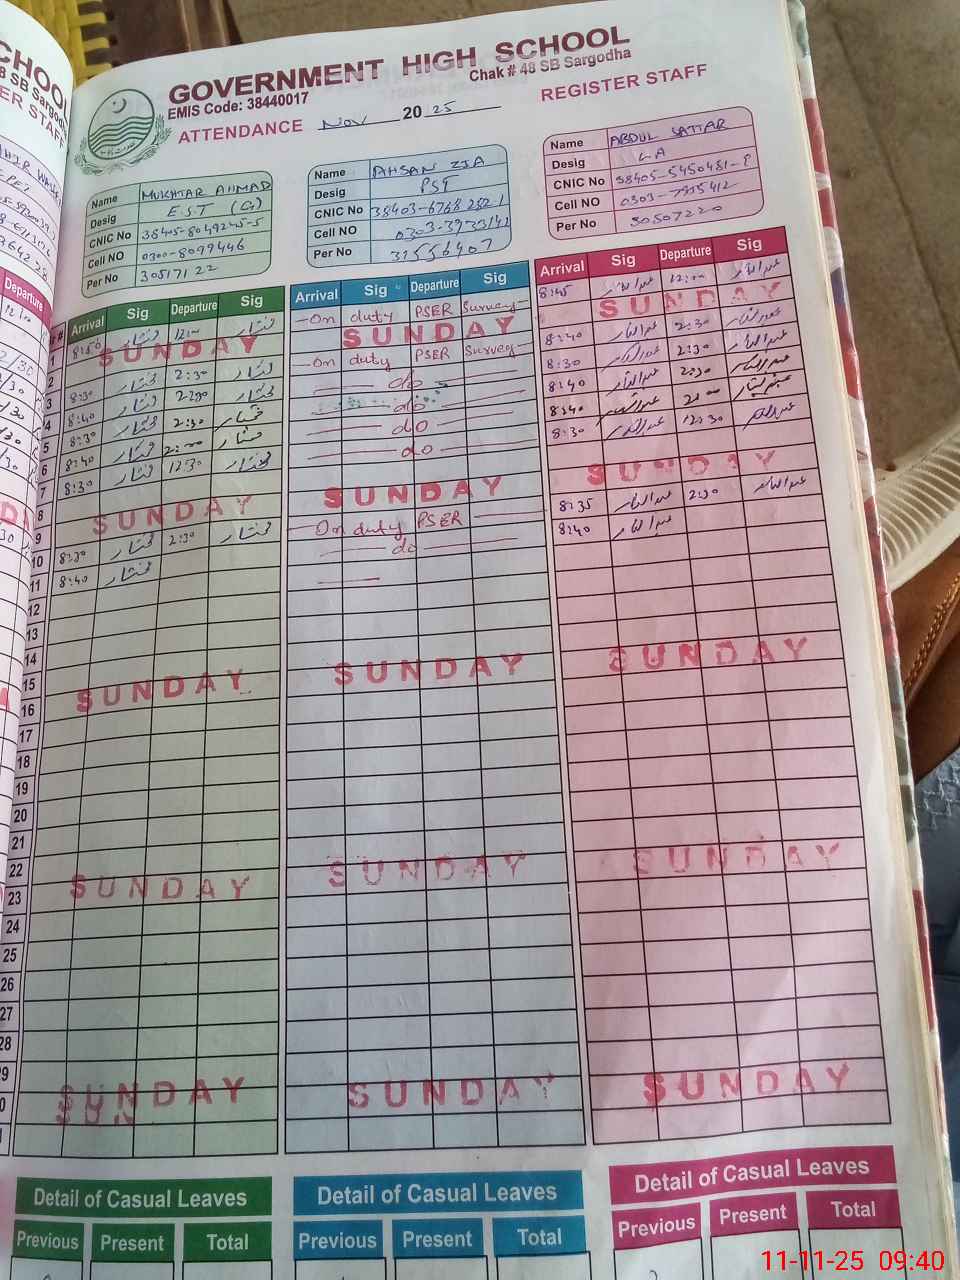 GOVERNMENT HIGH SCHOOL
EMIS Code: 38440017
Chak # 48 SB Sargodha
ATTENDANCE Nov 2025 REGISTER STAFF
Name MUKHTAR AHMAD
Desig E.S.T (G)
CNIC No 38405-8049245-5
Cell NO 0300-8099446
Per No 30517122
Name AHSAN ZIA
Desig PST
CNIC No 38403-6768282-1
Cell NO 0303-3973142
Per No 31556407
Name ABDUL SATTAR
Desig LA
CNIC No 38405-5450481-9
Cell NO 0303-7955412
Per No 30507220
Arrival Sig Departure Sig
1 8:50 مختار 12:00 مختار
2 SUNDAY
3 8:30 مختار 2:30 مختار
4 8:40 مختار 2:30 مختار
5 8:30 مختار 2:30 مختار
6 8:40 مختار 2:00 مختار
7 8:30 مختار 12:30 مختار
8
9 SUNDAY
10 8:30 مختار 2:30 مختار
11 8:40 مختار
12
13
14
15
16 SUNDAY
17
18
19
20
21
22
23 SUNDAY
24
25
26
27
28
29
30 SUNDAY
Arrival Sig Departure Sig
On duty PSER Survey
SUNDAY
On duty PSER Survey
do
do
do
do
SUNDAY
On duty PSER
do
SUNDAY
SUNDAY
SUNDAY
Arrival Sig Departure Sig
8:45 عبدالستار 12:00 عبدالستار
SUNDAY
8:40 عبدالستار 2:30 عبدالستار
8:30 عبدالستار 2:30 عبدالستار
8:40 عبدالستار 2:30 عبدالستار
8:40 عبدالستار 2:00 عبدالستار
8:30 عبدالستار 12:30 عبدالستار
SUNDAY
8:35 عبدالستار 2:30 عبدالستار
8:40 عبدالستار
SUNDAY
SUNDAY
SUNDAY
Detail of Casual Leaves
Previous Present Total
Detail of Casual Leaves
Previous Present Total
Detail of Casual Leaves
Previous Present Total
11-11-25 09:40